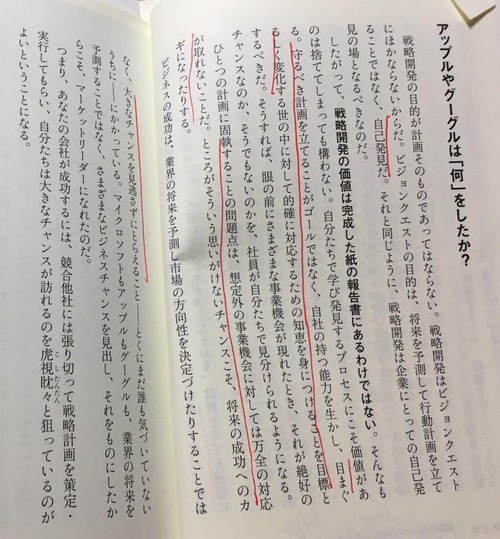 アップルやグーグルは「何」をしたか？
戦略開発の目的が計画そのものであってはならない。戦略開発はビジョンクエスト
にほかならないからだ。ビジョンクエストの目的は、将来を予測して行動計画を立て
ることではなく、自己発見だ。それと同じように、戦略開発は企業にとっての自己発
見の場となるべきなのだ。
したがって、戦略開発の価値は完成した紙の報告書にあるわけではない。そんなも
のは捨ててしまっても構わない。自分たちで学び発見するプロセスにこそ価値があ
る。守るべき計画を立てることがゴールではなく、自社の持つ能力を生かし、目まぐ
るしく変化する世の中に対して的確に対応するための知恵を身につけることを目標と
するべきだ。そうすれば、眼の前にさまざまな事業機会が現れたとき、それが絶好の
チャンスなのか、そうでもないのかを、社員が自分たちで見分けられるようになる。
ひとつの計画に固執することの問題点は、想定外の事業機会に対しては万全の対応
が取れないことだ。ところがそういう思いがけないチャンスこそ、将来の成功へのカ
ギになったりする。
ビジネスの成功は、業界の将来を予測し市場の方向性を決定づけたりすることでは
なく、大きなチャンスを見逃さずにとらえること――とくにまだ誰も気づいていない
うちに――にかかっている。マイクロソフトもアップルもグーグルも、業界の将来を
予測することではなく、さまざまなビジネスチャンスを見出し、それをものにしたか
らこそ、マーケットリーダーになれたのだ。
つまり、あなたの会社が成功するには、競合他社には張り切って戦略計画を策定・
実行してもらい、自分たちは大きなチャンスが訪れるのを虎視眈々と狙っているのが
こしたんたん
よいということになる。